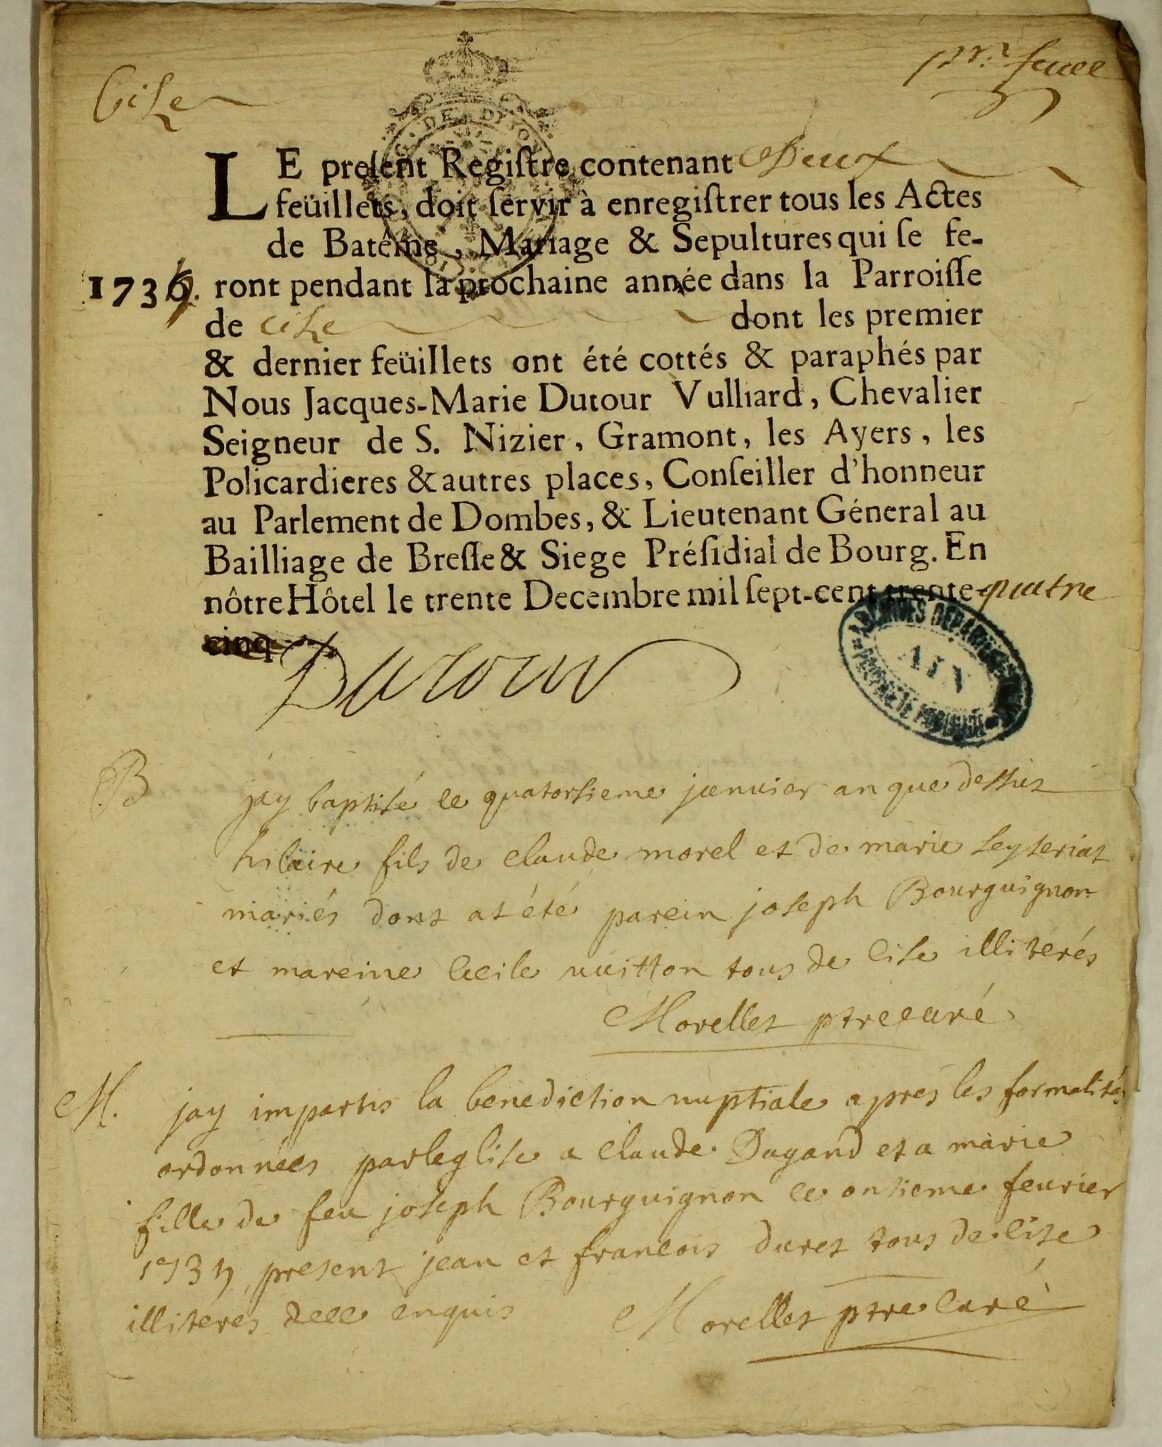 Cise
pr.r feuil
LE preſent Regiſtre contenant Deux
feüillets, doit ſervir à enregiſtrer tous les Actes
de Batême, Mariage & Sepultures qui ſe fe-
1735. ront pendant la prochaine année dans la Parroiſſe
de cise dont les premier
& dernier feüillets ont été cottés & paraphés par
Nous Jacques-Marie Dutour Vulliard, Chevalier
Seigneur de S. Nizier, Gramont, les Ayers, les
Policardieres & autres places, Conſeiller d'honneur
au Parlement de Dombes, & Lieutenant Géneral au
Bailliage de Breſſe & Siege Préſidial de Bourg. En
nôtre Hôtel le trente Decembre mil ſept-cent trente-quatre
cinq
Dutour
ARCHIVES DEPARTEMENTALES
AIN
PROPRIETE PUBLIQUE
B jay baptisé le quatorsieme janvier an que dessus
hilaire fils de claude morel et de marie seyseriat
mariés dont at été parein joseph Bourguignon
et mareine Cecile vuitton tous de Cise illiterés
Morellet ptre curé
M. jay impartis la benediction nuptiale apres les formalités
ordonnées par leglise a claude Dagand et a marie
fille de feu joseph Bourguignon le onsieme feurier
1735 present jean et francois duret tous de cise
illiterés de ce enquis Morellet ptre Curé